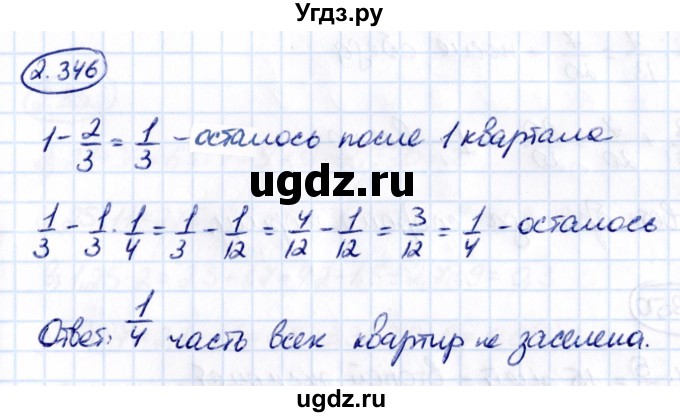 Угдз.ру
2.346
1 - 2/3 = 1/3 - осталось после 1 квартала
ugdz.ru
1/3 - 1/3 · 1/4 = 1/3 - 1/12 = 4/12 - 1/12 = 3/12 = 1/4 - осталось
ugdz.ru
Ответ: 1/4 часть всех квартир не заселена.
ugdz.ru